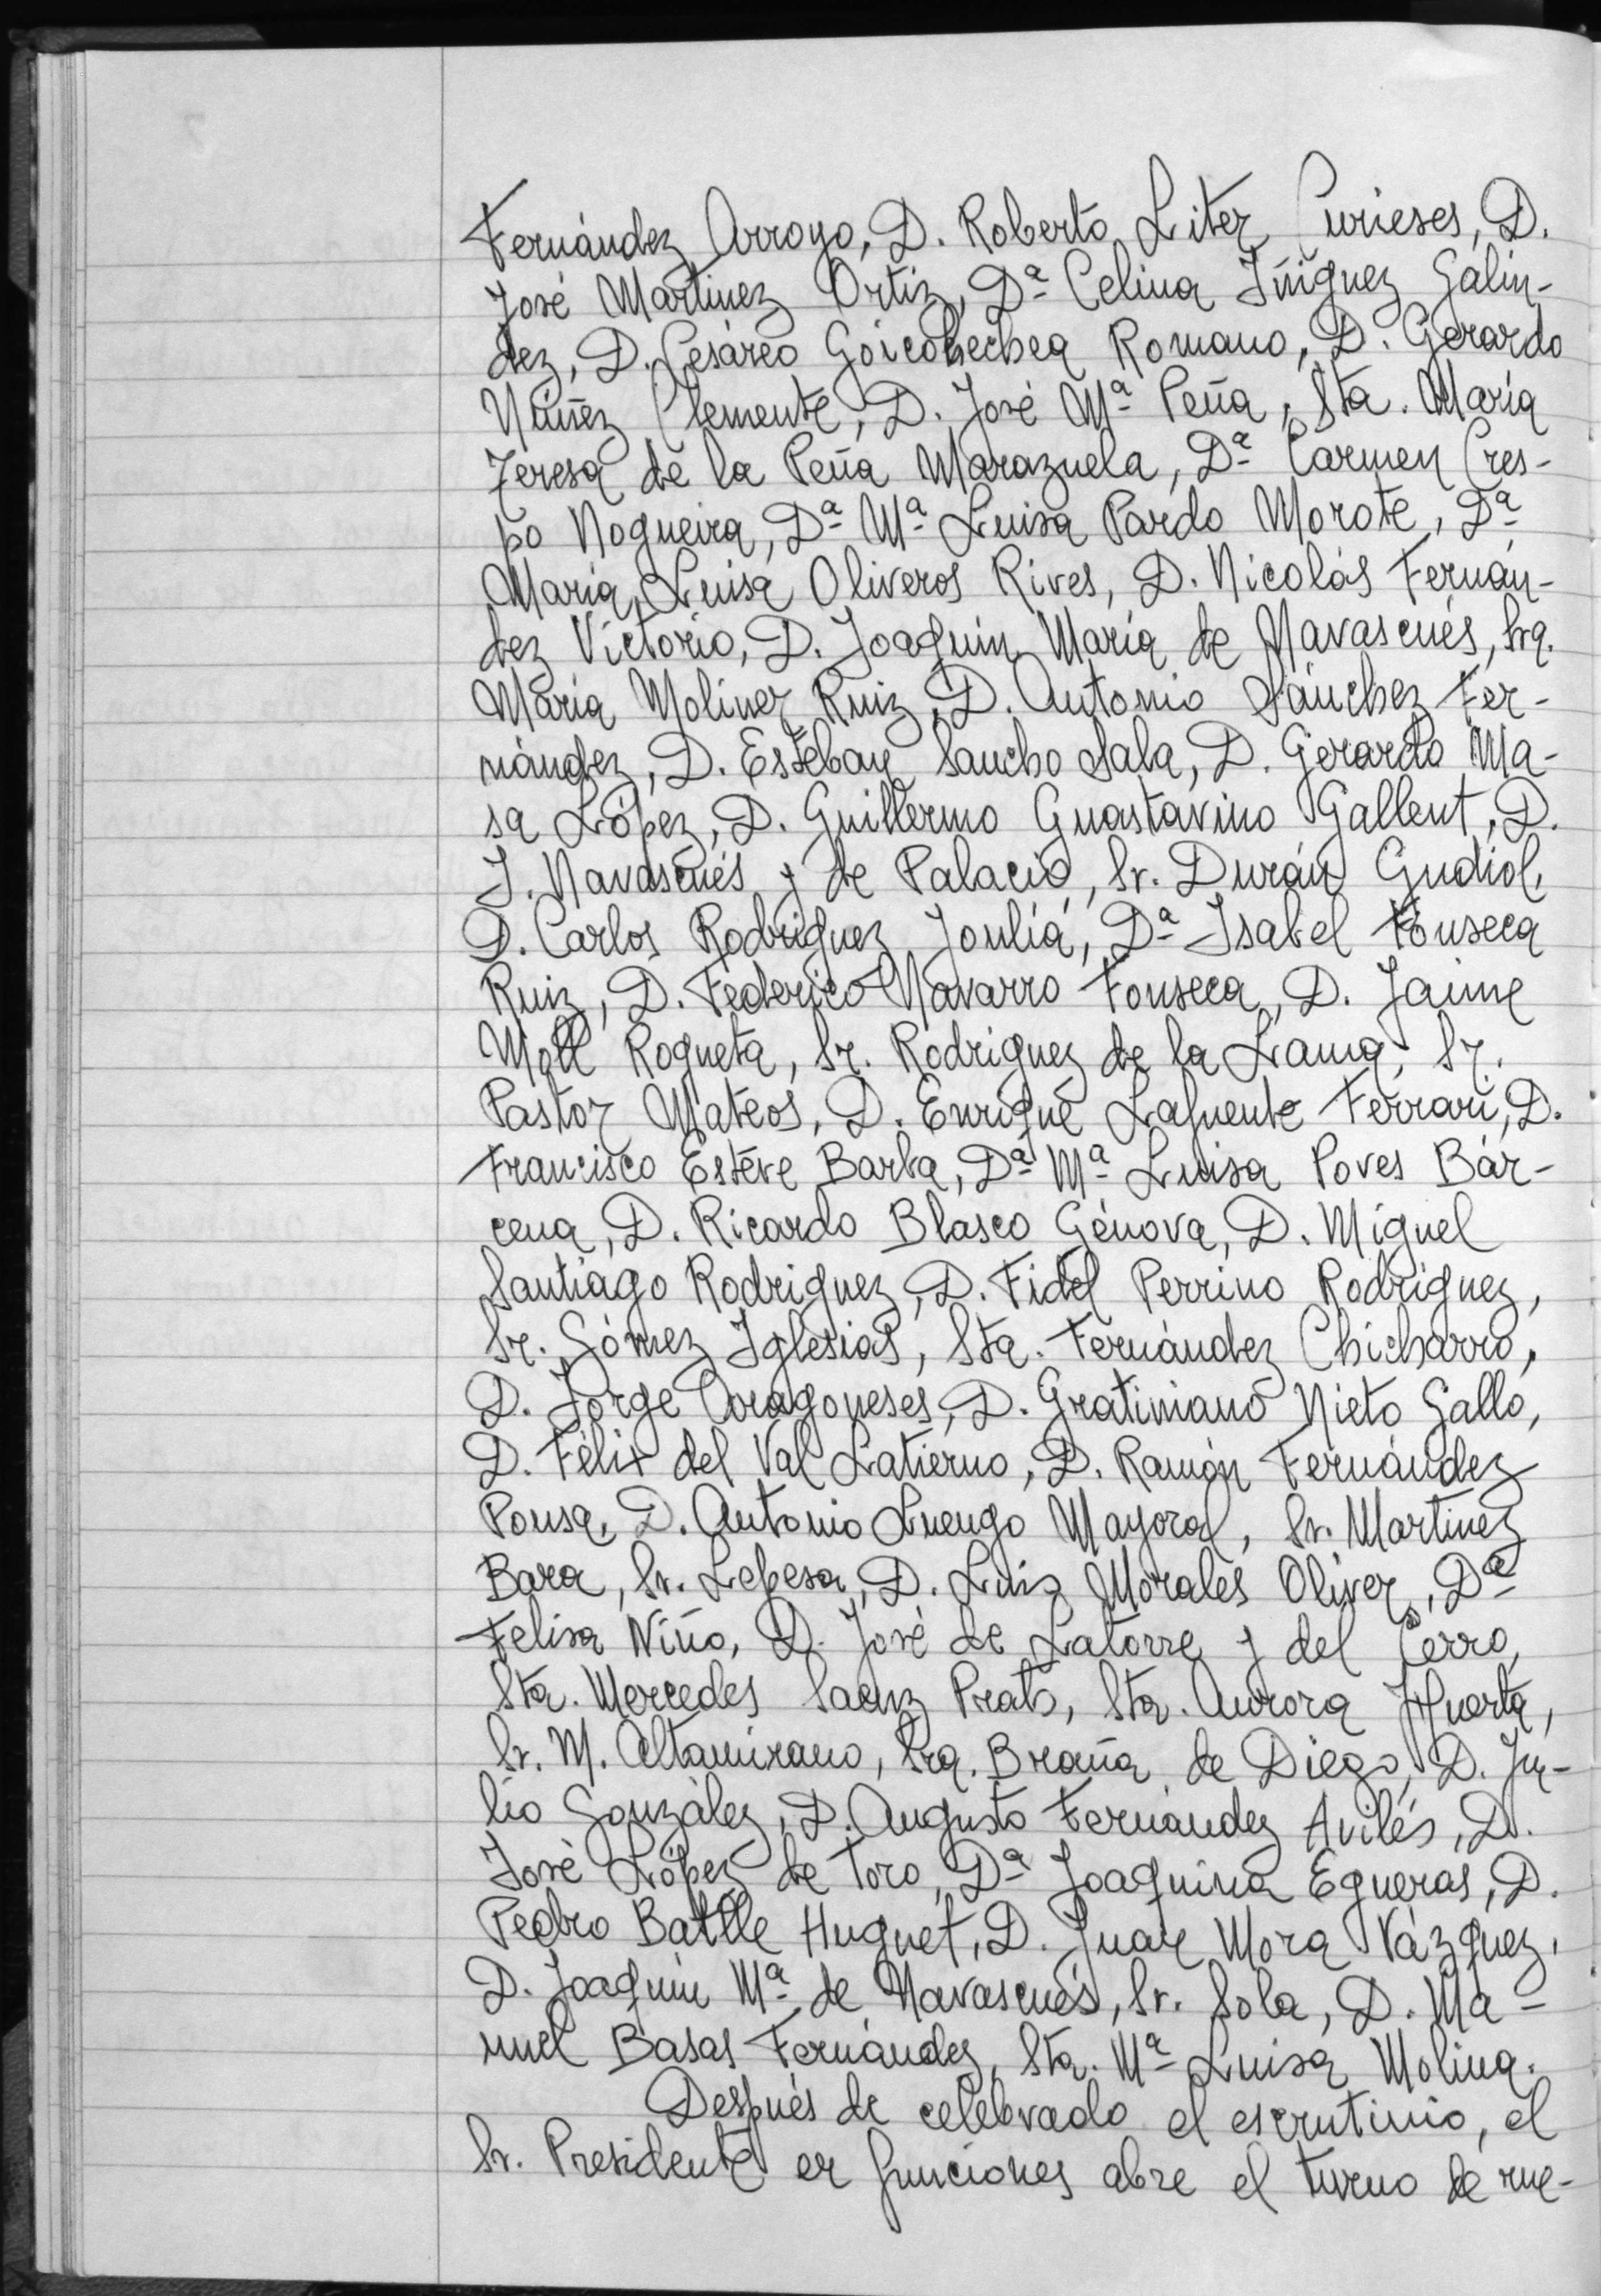 Fernández Arroyo, D. Roberto Liter Curieses, D.
José Martinez Ortiz, Dª Celina Iñiguez Galin-
dez, D. Cesáreo Goicohechea Romano, D. Gerardo
Núñez Clemente, D. José Mª Peña, Sta. María
Teresa de la Peña Marazuela, Dª Carmen Cres-
po Nogueira, Dª Mª Luisa Pardo Morote, Dª
María Luisa Oliveros Rives, D. Nicolás Fernán-
dez Victorio, D. Joaquín María de Navascués, Sra.
María Moliner Ruiz, D. Antonio Sánchez Fer-
nández, D. Esteban Sancho Sala, D. Gerardo Ma-
sa López, D. Guillermo Guastavino Gallent, D.
J. Navascués y de Palacio, Sr. Durán Gudiol,
D. Carlos Rodríguez Jouliá, Dª Isabel Fonseca
Ruiz, D. Federico Navarro Fonseca, D. Jaime
Moll Roqueta, Sr. Rodriguez de la Lama, Sr.
Pastor Mateos, D. Enrique Lafuente Ferrari, D.
Francisco Estéve Barba, Dª Mª Luisa Poves Bár-
cena, D. Ricardo Blasco Génova, D. Miguel
Santiago Rodriguez, D. Fidel Perrino Rodriguez,
Sr. Gómez Iglesias, Sta. Fernández Chicharro,
D. Jorge Aragoneses, D. Gratiniano Nieto Gallo,
D. Félix del Val Latierno, D. Ramón Fernández
Pousa, D. Antonio Luengo Mayoral, Sr. Martinez
Bara, Sr. Lepesa, D. Luis Morales Oliver, Dª
Felisa Niño, D. José de Latorre y del Cerro,
Sta. Mercedes Saenz Prats, Sta. Aurora Huarta,
Sr. M. Altamirano, Sra. Braña de Diego, D. Ju-
lio González, D. Augusto Fernández Avilés, D.
José López de Toro, Dª Joaquina Egueras, D.
Pedro Batlle Huguet, D. Juan Mora Vázquez,
D. Joaquín Mª de Navascués, Sr. Sola, D. Ma-
nuel Basas Fernández, Sta. Mª Luisa Molina.
Después de celebrado el escrutinio, el
Sr. Presidente en funciones abre el turno de rue-